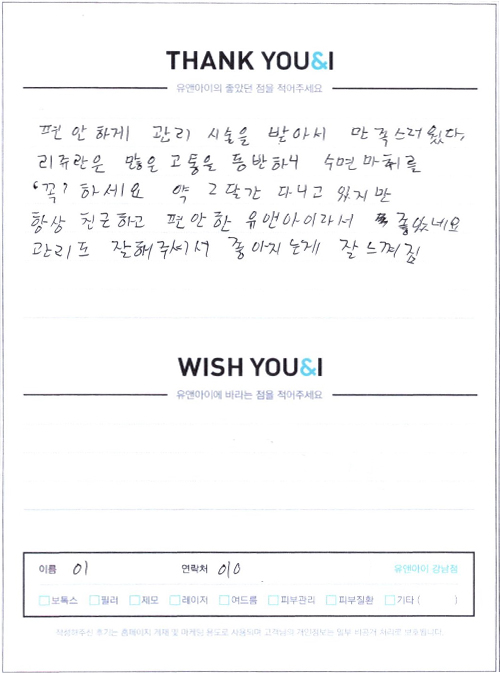 THANK YOU&I
유앤아이의 좋았던 점을 적어주세요
편안하게 관리 시술을 받아서 만족스러웠다.
리쥬란은 많은 고통을 동반하니 수면마취를
'꼭' 하세요 약 2달간 다니고 있지만
항상 친근하고 편안한 유앤아이라서 좋았네요
관리도 잘해주셔서 좋아지는게 잘 느껴짐
WISH YOU&I
유앤아이에 바라는 점을 적어주세요
이름 이 연락처 010 유앤아이 강남점
보톡스 필러 제모 레이저 여드름 피부관리 피부질환 기타 ( )
작성해주신 후기는 홈페이지 게재 및 마케팅 용도로 사용되며 고객님의 개인정보는 일부 비공개 처리로 보호됩니다.